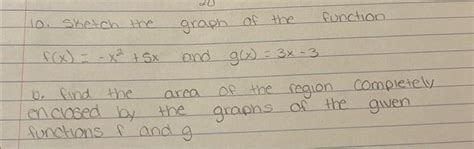 10. Sketch the graph of the function
f(x) = -x² + 5x and g(x) = 3x - 3
b. find the area of the region completely
enclosed by the graphs of the given
functions f and g